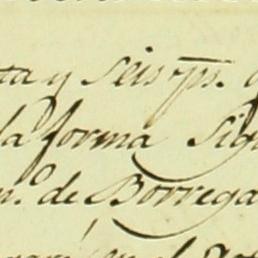 ta y seis ps.
la forma sig
n.º de Borrega
en el